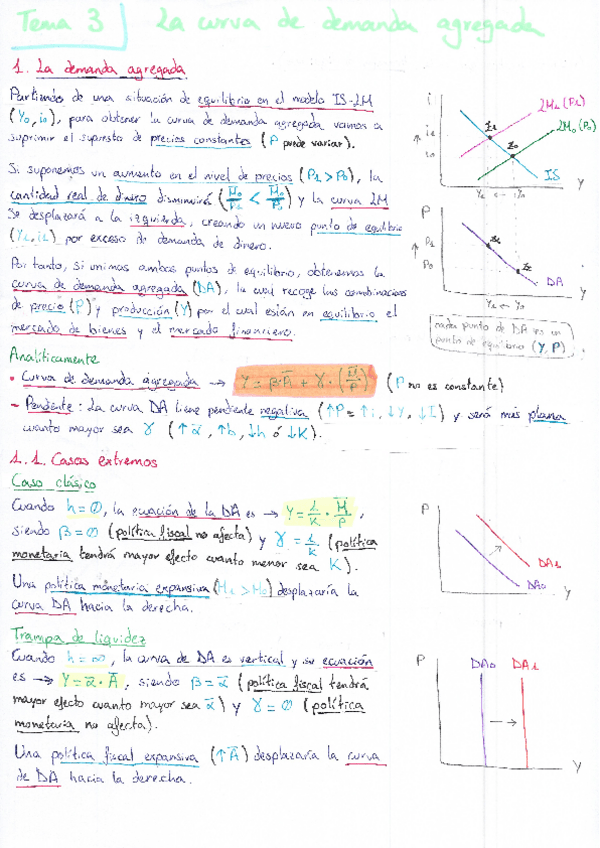 Tema 3 La curva de demanda agregada
1. La demanda agregada
Partiendo de una situación de equilibrio en el modelo IS-LM
(Y₀, i₀), para obtener la curva de demanda agregada vamos a
suprimir el supuesto de precios constantes (P puede variar).
Si suponemos un aumento en el nivel de precios (P₁ > P₀), la
cantidad real de dinero disminuirá (M̅₀/P₁ < M̅₀/P₀) y la curva LM
se desplazará a la izquierda, creando un nuevo punto de equilibrio
(Y₁, i₁) por exceso de demanda de dinero.
Por tanto, si unimos ambos puntos de equilibrio, obtenemos la
curva de demanda agregada (DA), la cual recoge las combinaciones
de precio (P) y producción (Y) por el cual están en equilibrio el
mercado de bienes y el mercado financiero.
i
i₁
i₀
LM₁(P₁)
LM₀(P₀)
E₁
E₀
IS
Y₁ ← Y₀
Y
P
P₁
P₀
E₁
E₀
DA
Y₁ ← Y₀
Y
cada punto de DA es un
punto de equilibrio (Y, P)
Analíticamente
• Curva de demanda agregada → Y = β·A̅ + γ·(M̅/P) (P no es constante)
- Pendiente: La curva DA tiene pendiente negativa (↑P = ↑i, ↓Y, ↓I) y será más plana
cuanto mayor sea γ (↑α̅, ↑b, ↓h ó ↓K).
1.1. Casos extremos
Caso clásico
Cuando h = 0, la ecuación de la DA es → Y = 1/K · M̅/P,
siendo β = 0 (política fiscal no afecta) y γ = 1/K (política
monetaria tendrá mayor efecto cuanto menor sea K).
Una política monetaria expansiva (M₁ > M₀) desplazaría la
curva DA hacia la derecha.
P
DA₁
DA₀
Y
Trampa de liquidez
Cuando h = ∞, la curva de DA es vertical y su ecuación
es → Y = α̅·A̅, siendo β = α̅ (política fiscal tendrá
mayor efecto cuanto mayor sea α̅) y γ = 0 (política
monetaria no afecta).
Una política fiscal expansiva (↑A̅) desplazaría la curva
de DA hacia la derecha.
P
DA₀ DA₁
Y